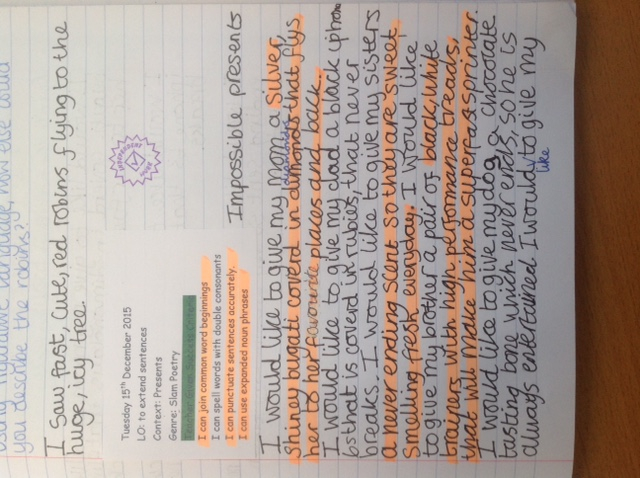 using figurative language, how else could
you describe the robins?
I saw fast, cute, red robins flying to the
huge, icy tree.
Tuesday 15th December 2015
LO: to extend sentences
Context: Presents
Genre: Slam Poetry
I can join common word beginnings
I can spell words with double consonants
I can punctuate sentences accurately.
I can use expanded noun phrases
INDEPENDENT WORK
Impossible presents
I would like to give my mom a silver,
shiney bugatti coverd in dimonds that flys
diamonds
her to her favourite places and back.
I would like to give my dad a black iphone
6s that is coverd in rubies, that never
breaks. I would like to give my sisters
a never ending scent so they are sweet
smelling fresh everyday. I would like
to give my brother a pair of black, white
trainers with high performance treads,
that will make him a superfast sprinter.
I would like to give my dog a chocolate
tasting bone which never ends, so he is
always entertained I would to give my
like